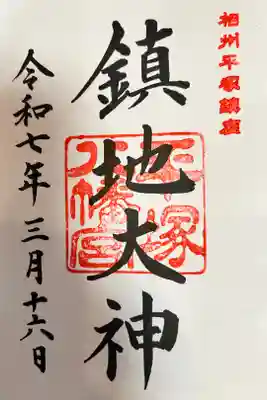 相州平塚鎮座
鎮地大神
平塚八幡宮
令和七年三月十六日